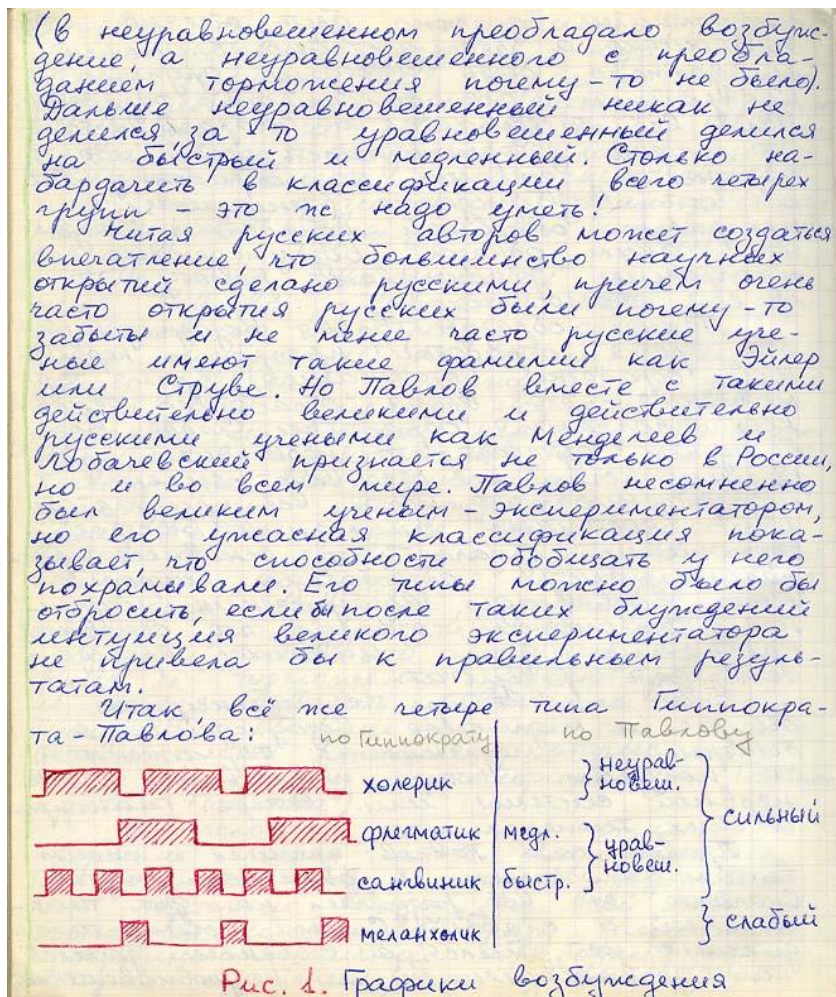 (в неуравновешенном преобладало возбуж-
дение, а неуравновешенного с преобла-
данием торможения почему-то не было).
Дальше неуравновешенный никак не
делился, за то уравновешенный делился
на быстрый и медленный. Столько на-
бардачить в классификации всего четырех
групп - это ж надо уметь!
Читая русских авторов может создаться
впечатление, что большинство научных
открытий сделано русскими, причём очень
часто открытия русских были почему-то
забыты и не менее часто русские уче-
ные имеют такие фамилии как Эйлер
или Струве. Но Павлов вместе с такими
действительно великими и действительно
русскими учеными как Менделеев и
Лобачевский признается не только в России,
но и во всем мире. Павлов несомненно
был великим ученым-экспериментатором,
но его ужасная классификация пока-
зывает, что способности обобщать у него
похрамывали. Его типы можно было бы
отбросить, если бы после таких блуждений
интуиция великого экспериментатора
не привела бы к правильным резуль-
татам.
Итак, всё же четыре типа Гиппокра-
та-Павлова: по Гиппократу по Павлову
холерик } неурав-
новеш.
флегматик медл. } урав-
новеш. } сильный
сангвиник быстр.
меланхолик } слабый
Рис. 1. Графики возбуждения